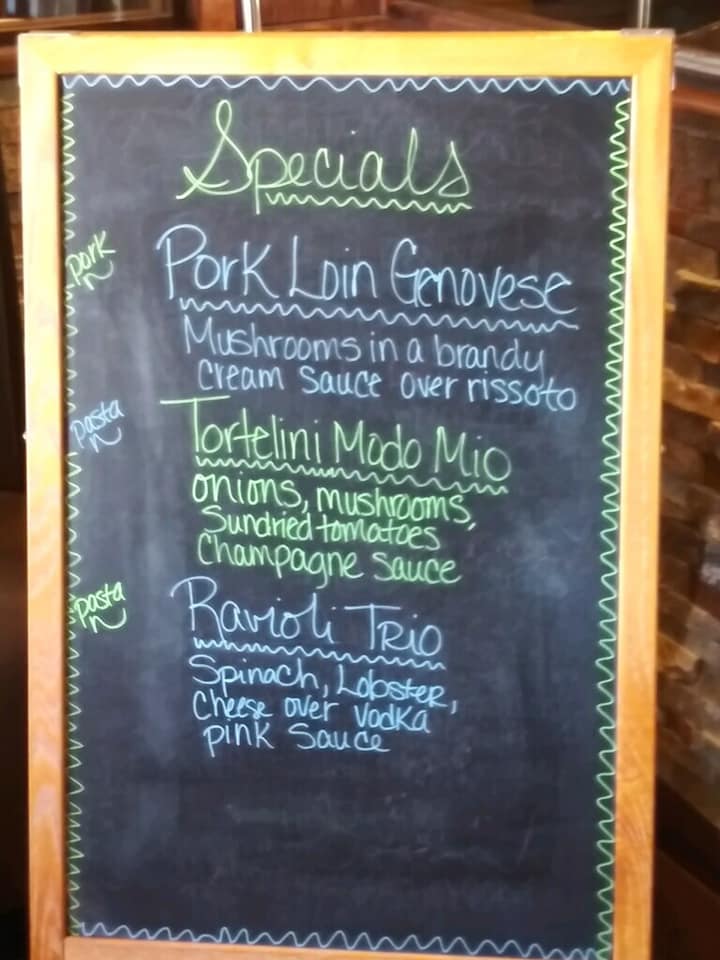 Specials
pork
Pork Loin Genovese
Mushrooms in a brandy
cream sauce over rissoto
pasta
Tortelini Modo Mio
onions, mushrooms,
sundried tomatoes
champagne sauce
pasta
Ravioli Trio
Spinach, Lobster,
cheese over vodka
pink sauce